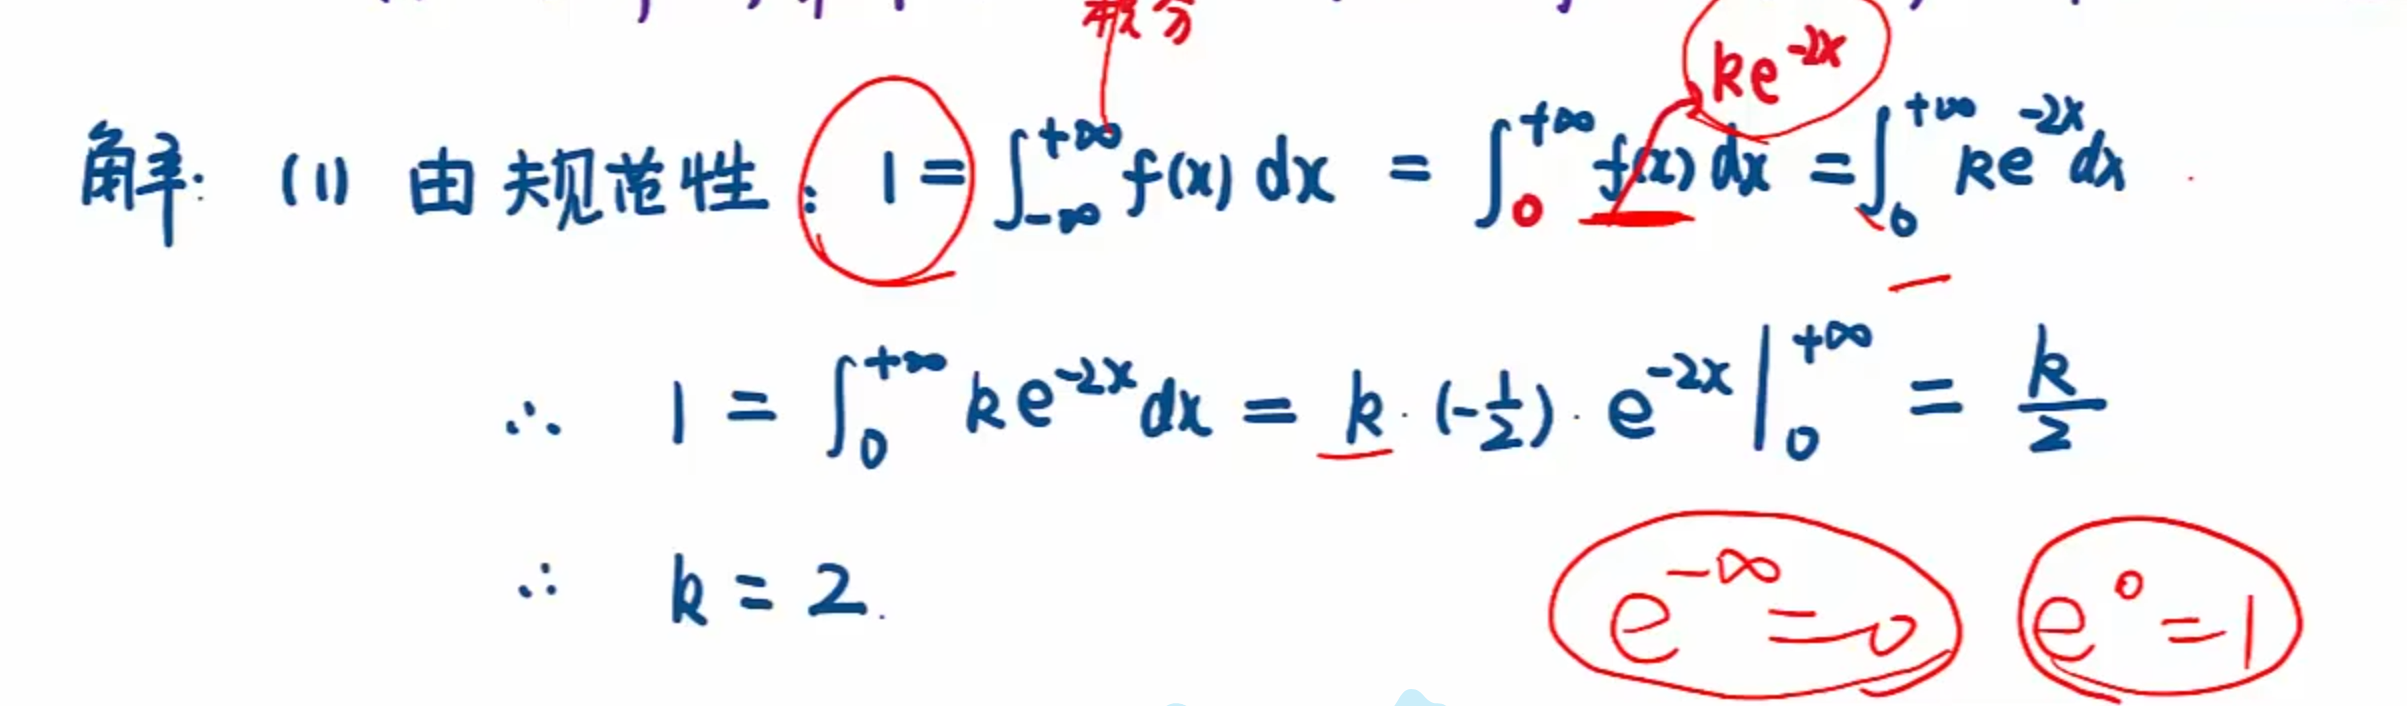 积分
ke^{-2x}
解: (1) 由规范性: 1 = ∫_{-∞}^{+∞} f(x) dx = ∫_0^{+∞} f(x) dx = ∫_0^{+∞} ke^{-2x} dx
∴ 1 = ∫_0^{+∞} ke^{-2x} dx = k · (-1/2) · e^{-2x} |_0^{+∞} = k/2
∴ k = 2.
e^{-∞} = 0 e^0 = 1